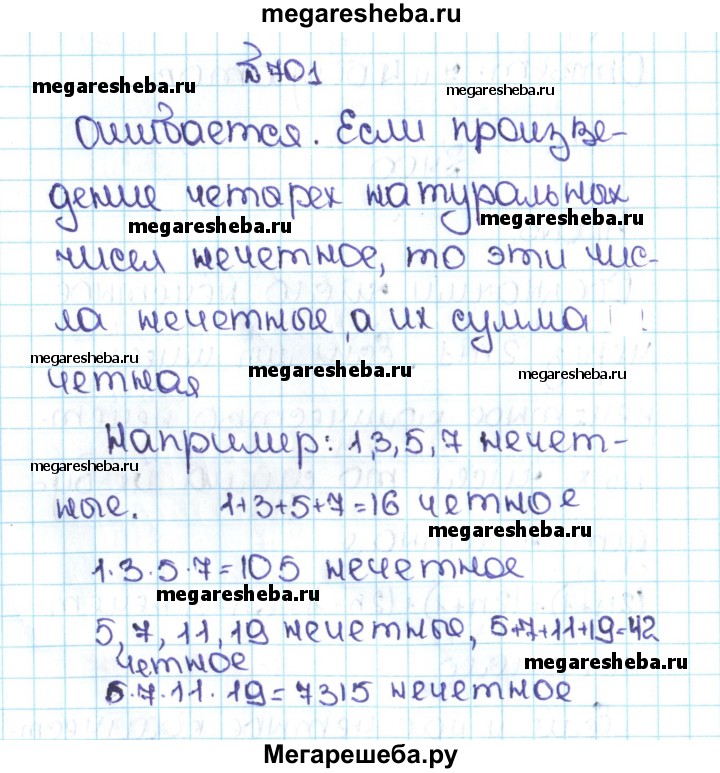 megaresheba.ru
№701
megaresheba.ru
megaresheba.ru
Ошибается. Если произве-
дение четырех натуральных
megaresheba.ru
megaresheba.ru
чисел нечетное, то эти чис-
ла нечетные, а их сумма
megaresheba.ru
megaresheba.ru
megaresheba.ru
четная
Например: 1,3,5,7 нечет-
megaresheba.ru
ные. 1+3+5+7=16 четное
megaresheba.ru
1·3·5·7=105 нечетное
megaresheba.ru
5,7,11,19 нечетные, 5+7+11+19=42
четное
megaresheba.ru
5·7·11·19=7315 нечетное
Мегарешеба.ру